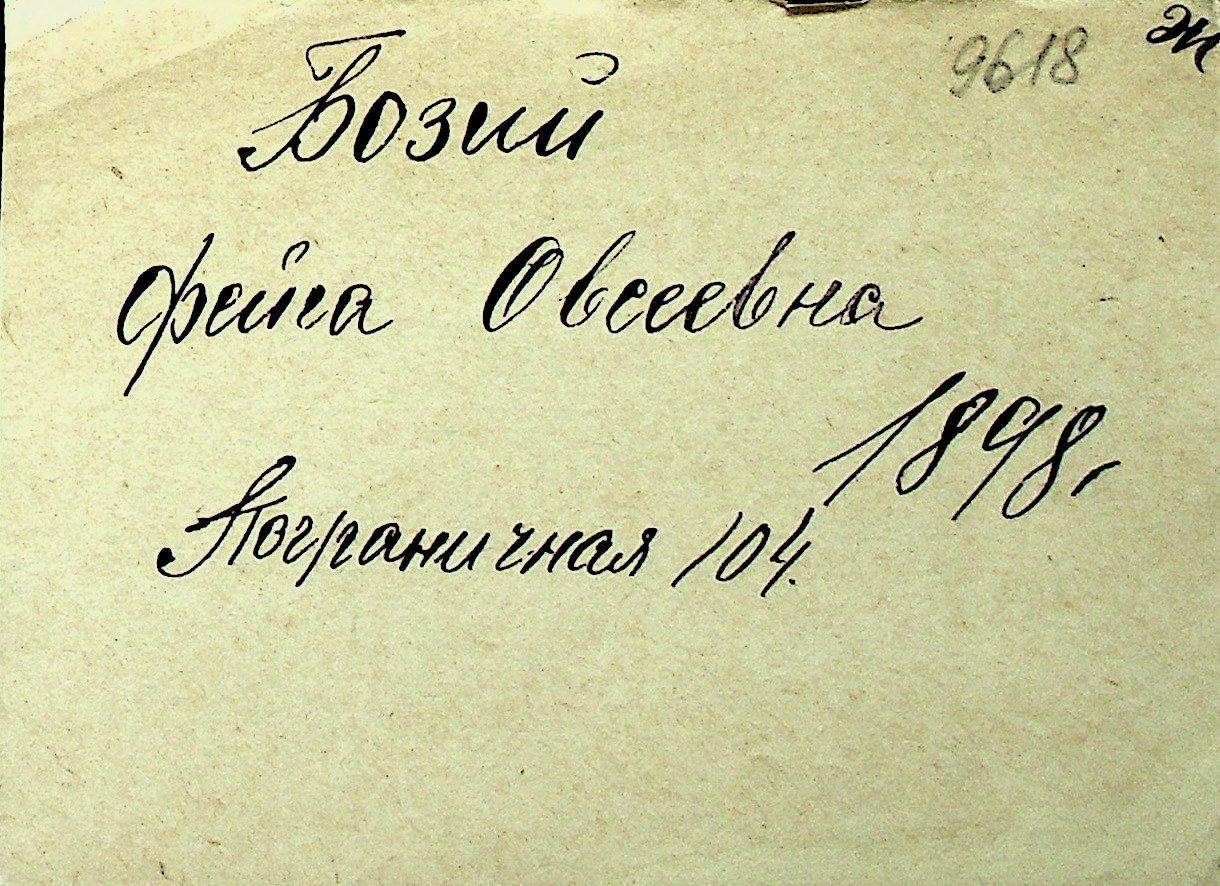 9618 ж
Бозий
Фейга Овсеевна
1898,
Пограничная 104.